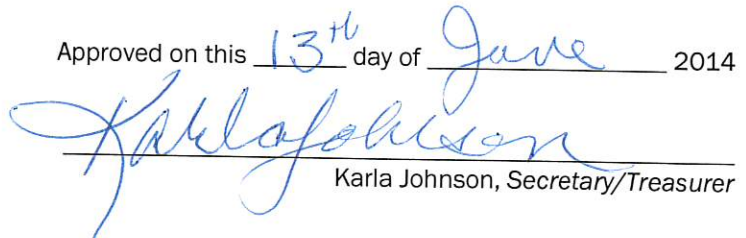 Approved on this 13th day of June 2014
Karla Johnson
Karla Johnson, Secretary/Treasurer